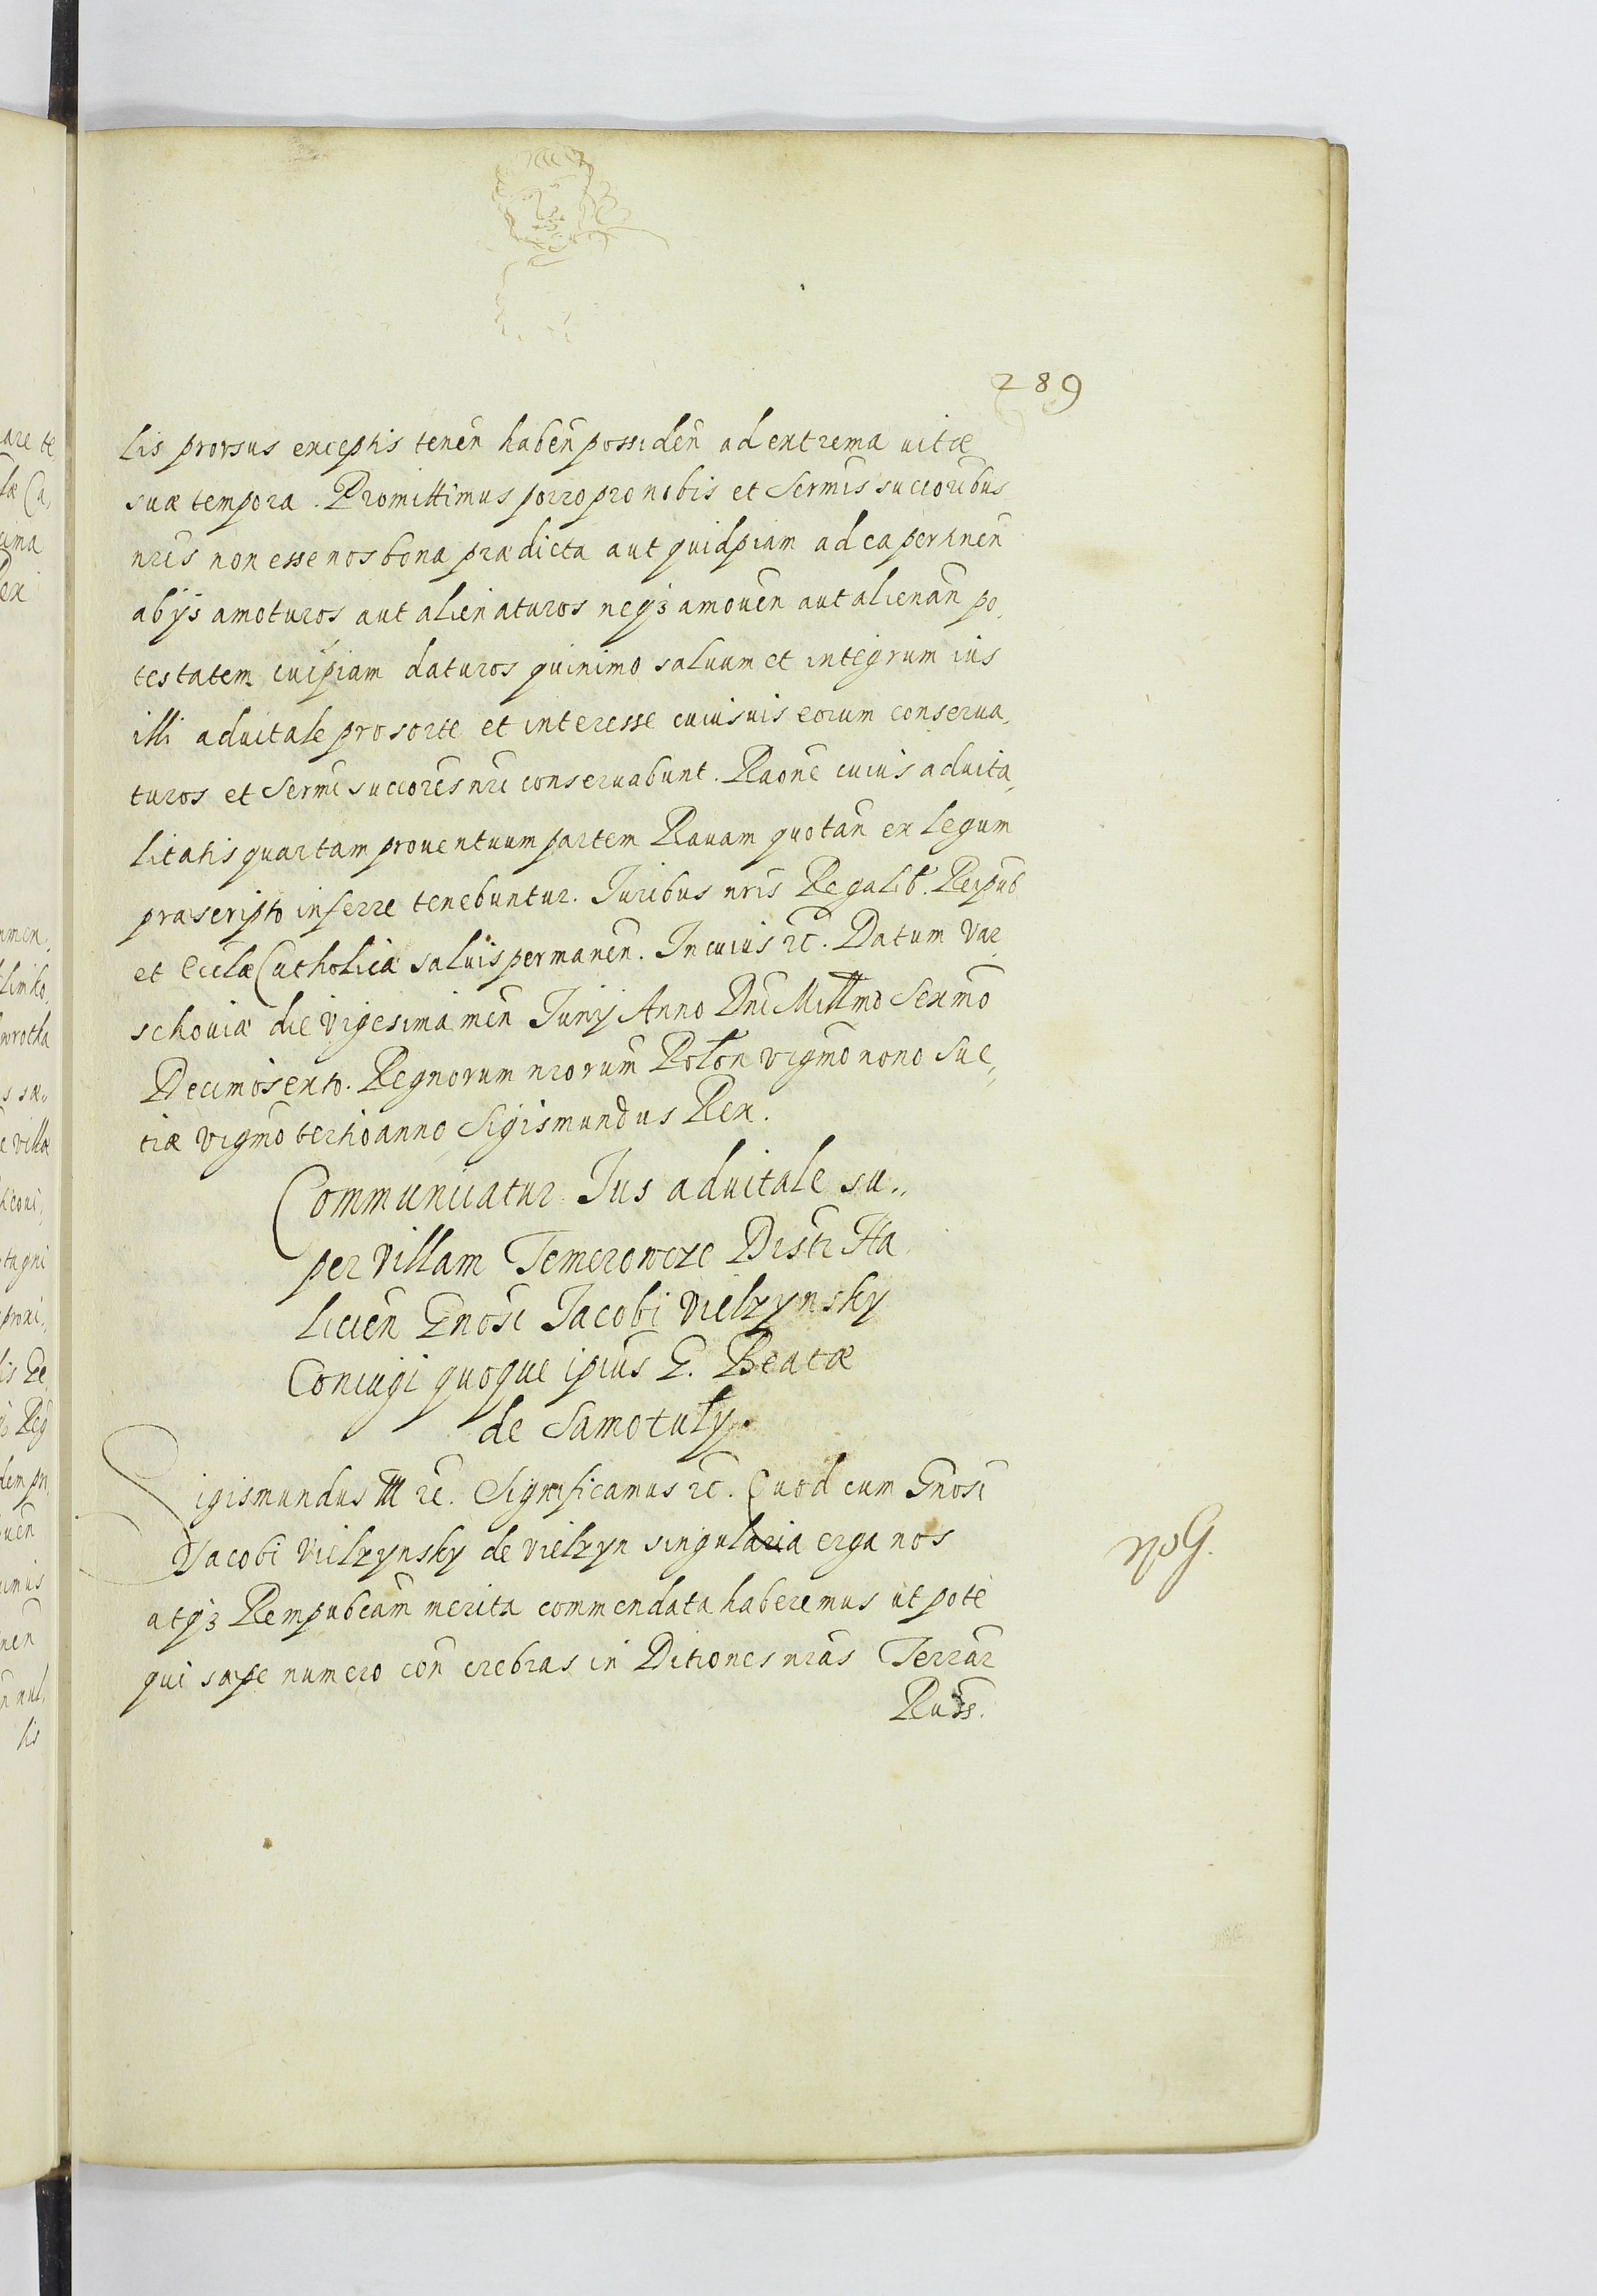 289
lis prorsus exceptis tenen̄ haben̄ possiden̄ ad extrema uitæ
suæ tempora. Promittimus porro pro nobis et Serm̄is succoribus
nr̄is non esse nos bona prædicta aut quidpiam ad ea pertinen̄
ab ijs amoturos aut alienaturos neqȝ amouen̄ aut alienan̄ po,
testatem cuipiam daturos quinimo saluum et integrum ius
illi aduitale pro sorte et interesse cuiusuis eorum conserua,
turos et Serm̄i succores nr̄i conseruabunt. Raone cuius aduita,
litatis quartam prouentuum partem Rauam quotan̄ ex legum
præscripto inferre tenebuntur. Juribus nr̄is Regalib. Reipub
et Eccl̄æ Catholicæ saluis permanen̄. In cuius ꝛc̄. Datum Var,
schouiæ die vigesima men̄ Junij Anno Dn̄i Millm̄o Sexm̄o
Decimosexto. Regnorum nr̄orum Polon̄ vigm̄o nono Sue,,
tiæ vigm̄o tertio anno Sigismundus Rex.
Communicatur Jus aduitale su,,
per villam Temerowcze Distr̄ Ha,
licien̄ Gnosi Jacobi Vielzynsky
Coniugi quoque ip̄ius G. Beatæ
de Samotuły.
Sigismundus III ꝛc̄. Significamus ꝛc̄. Quod cum Gnosi
Jacobi Vielzynsky de Vielzyn singularia erga nos
atqȝ Rempubcam̄ merita commendata haberemus ut pote
qui sæpe numero con̄ crebras in Ditiones nr̄as Terrar̄
Russ.